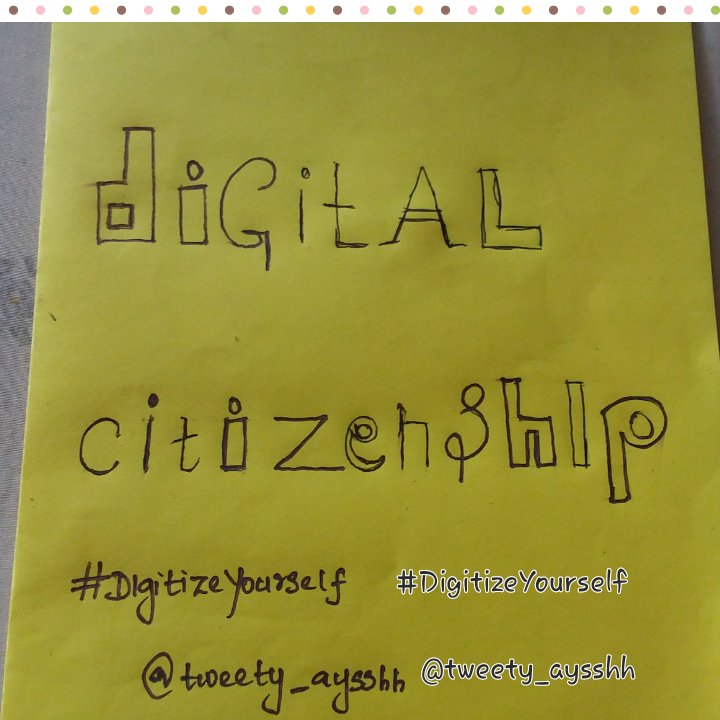 diGitAL
citizenshIp
#DIgitizeYourself #DigitizeYourself
@tweety_aysshh @tweety_aysshh